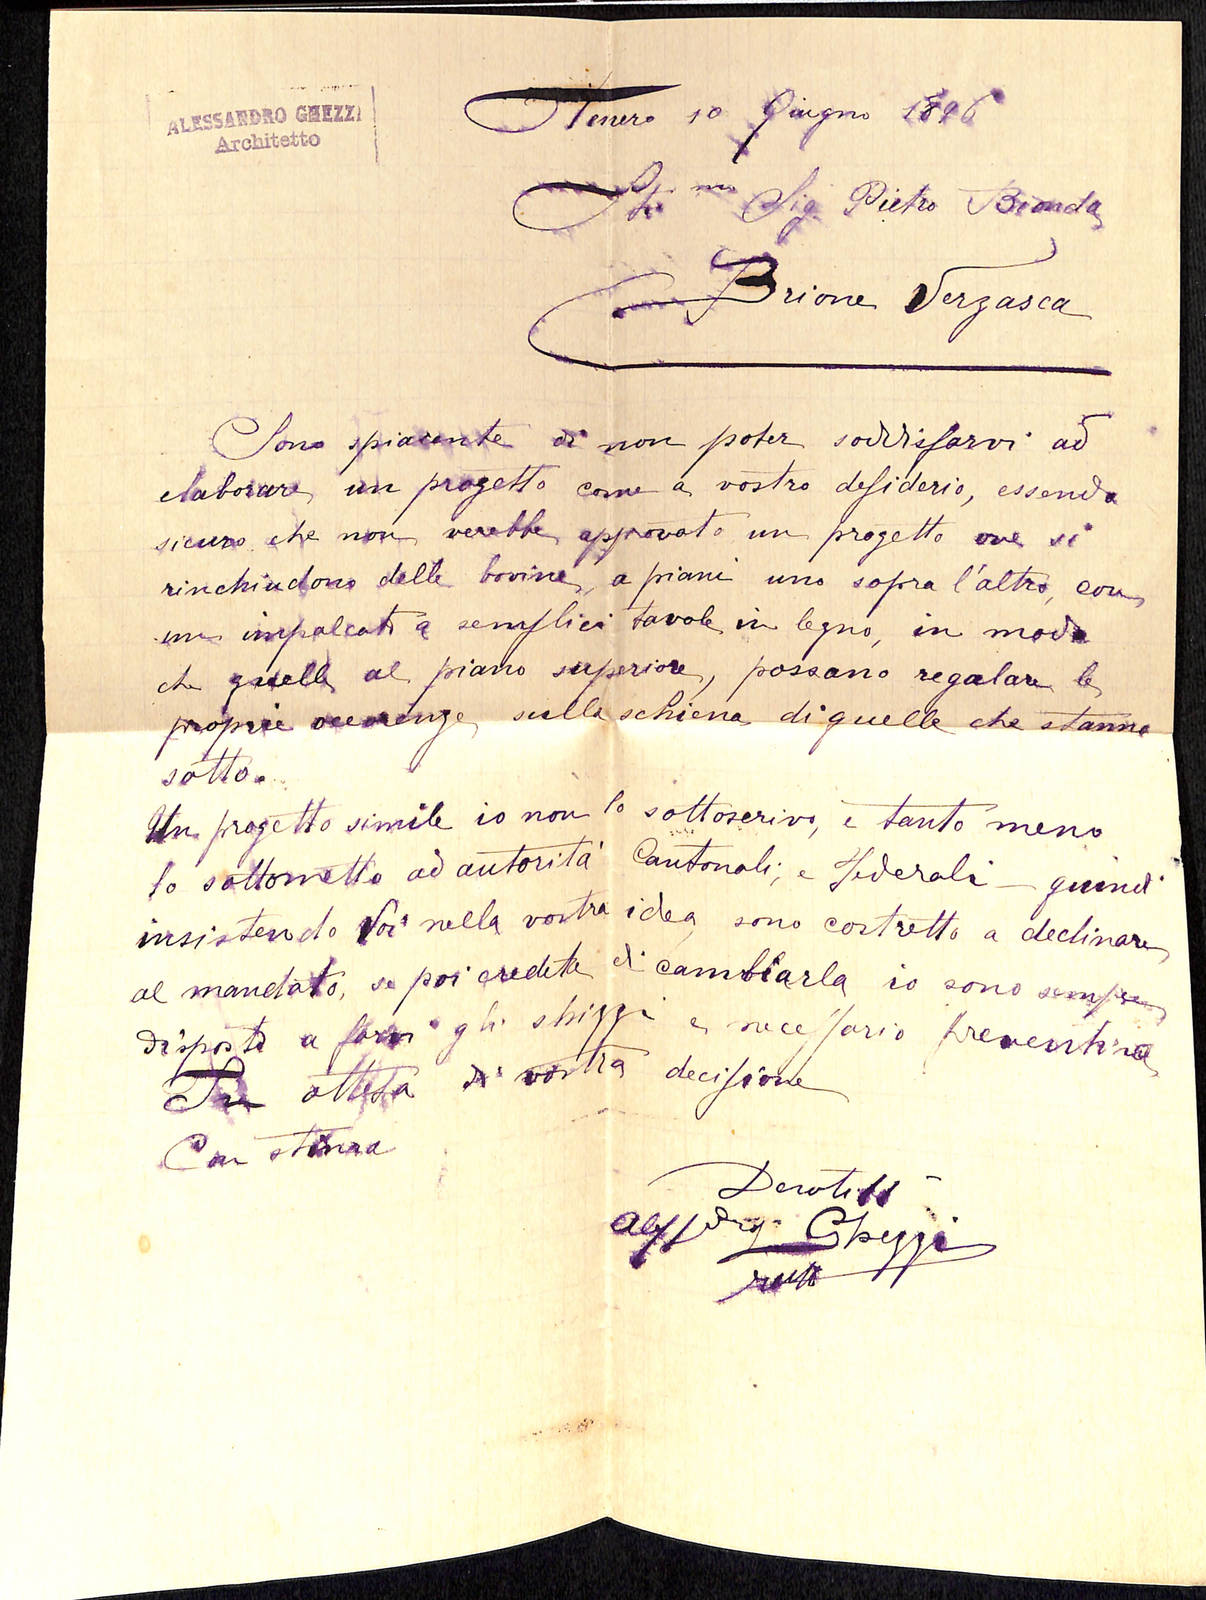 ALESSANDRO GHEZZI
Architetto
Tenero 10 Giugno 1896
Sig Pietro Bionda
Brione Verzasca
Sono spiacente di non poter soddisfarvi ad
elaborare un progetto come a vostro desiderio, essendo
sicuro che non verebbe approvato un progetto ove si
rinchiudono delle bovine, a piani uno sopra l'altro, con
un impalcato a semplici tavole in legno, in modo
che quelle al piano superiore, possano regalare le
proprie occorenze sulla schiena di quelle che stanno
sotto.
Un progetto simile io non lo sottoscrivo, e tanto meno
lo sottometto ad autorità Cantonali, e Federali - quindi
insistendo Voi nella vostra idea, sono costretto a declinare
al mandato, se poi credete di cambiarla io sono sempre
disposto a farvi gli shizzi e necessario preventivo
In attesa di vostra decisione
Con stima
Devotiss
Aless Ghezzi